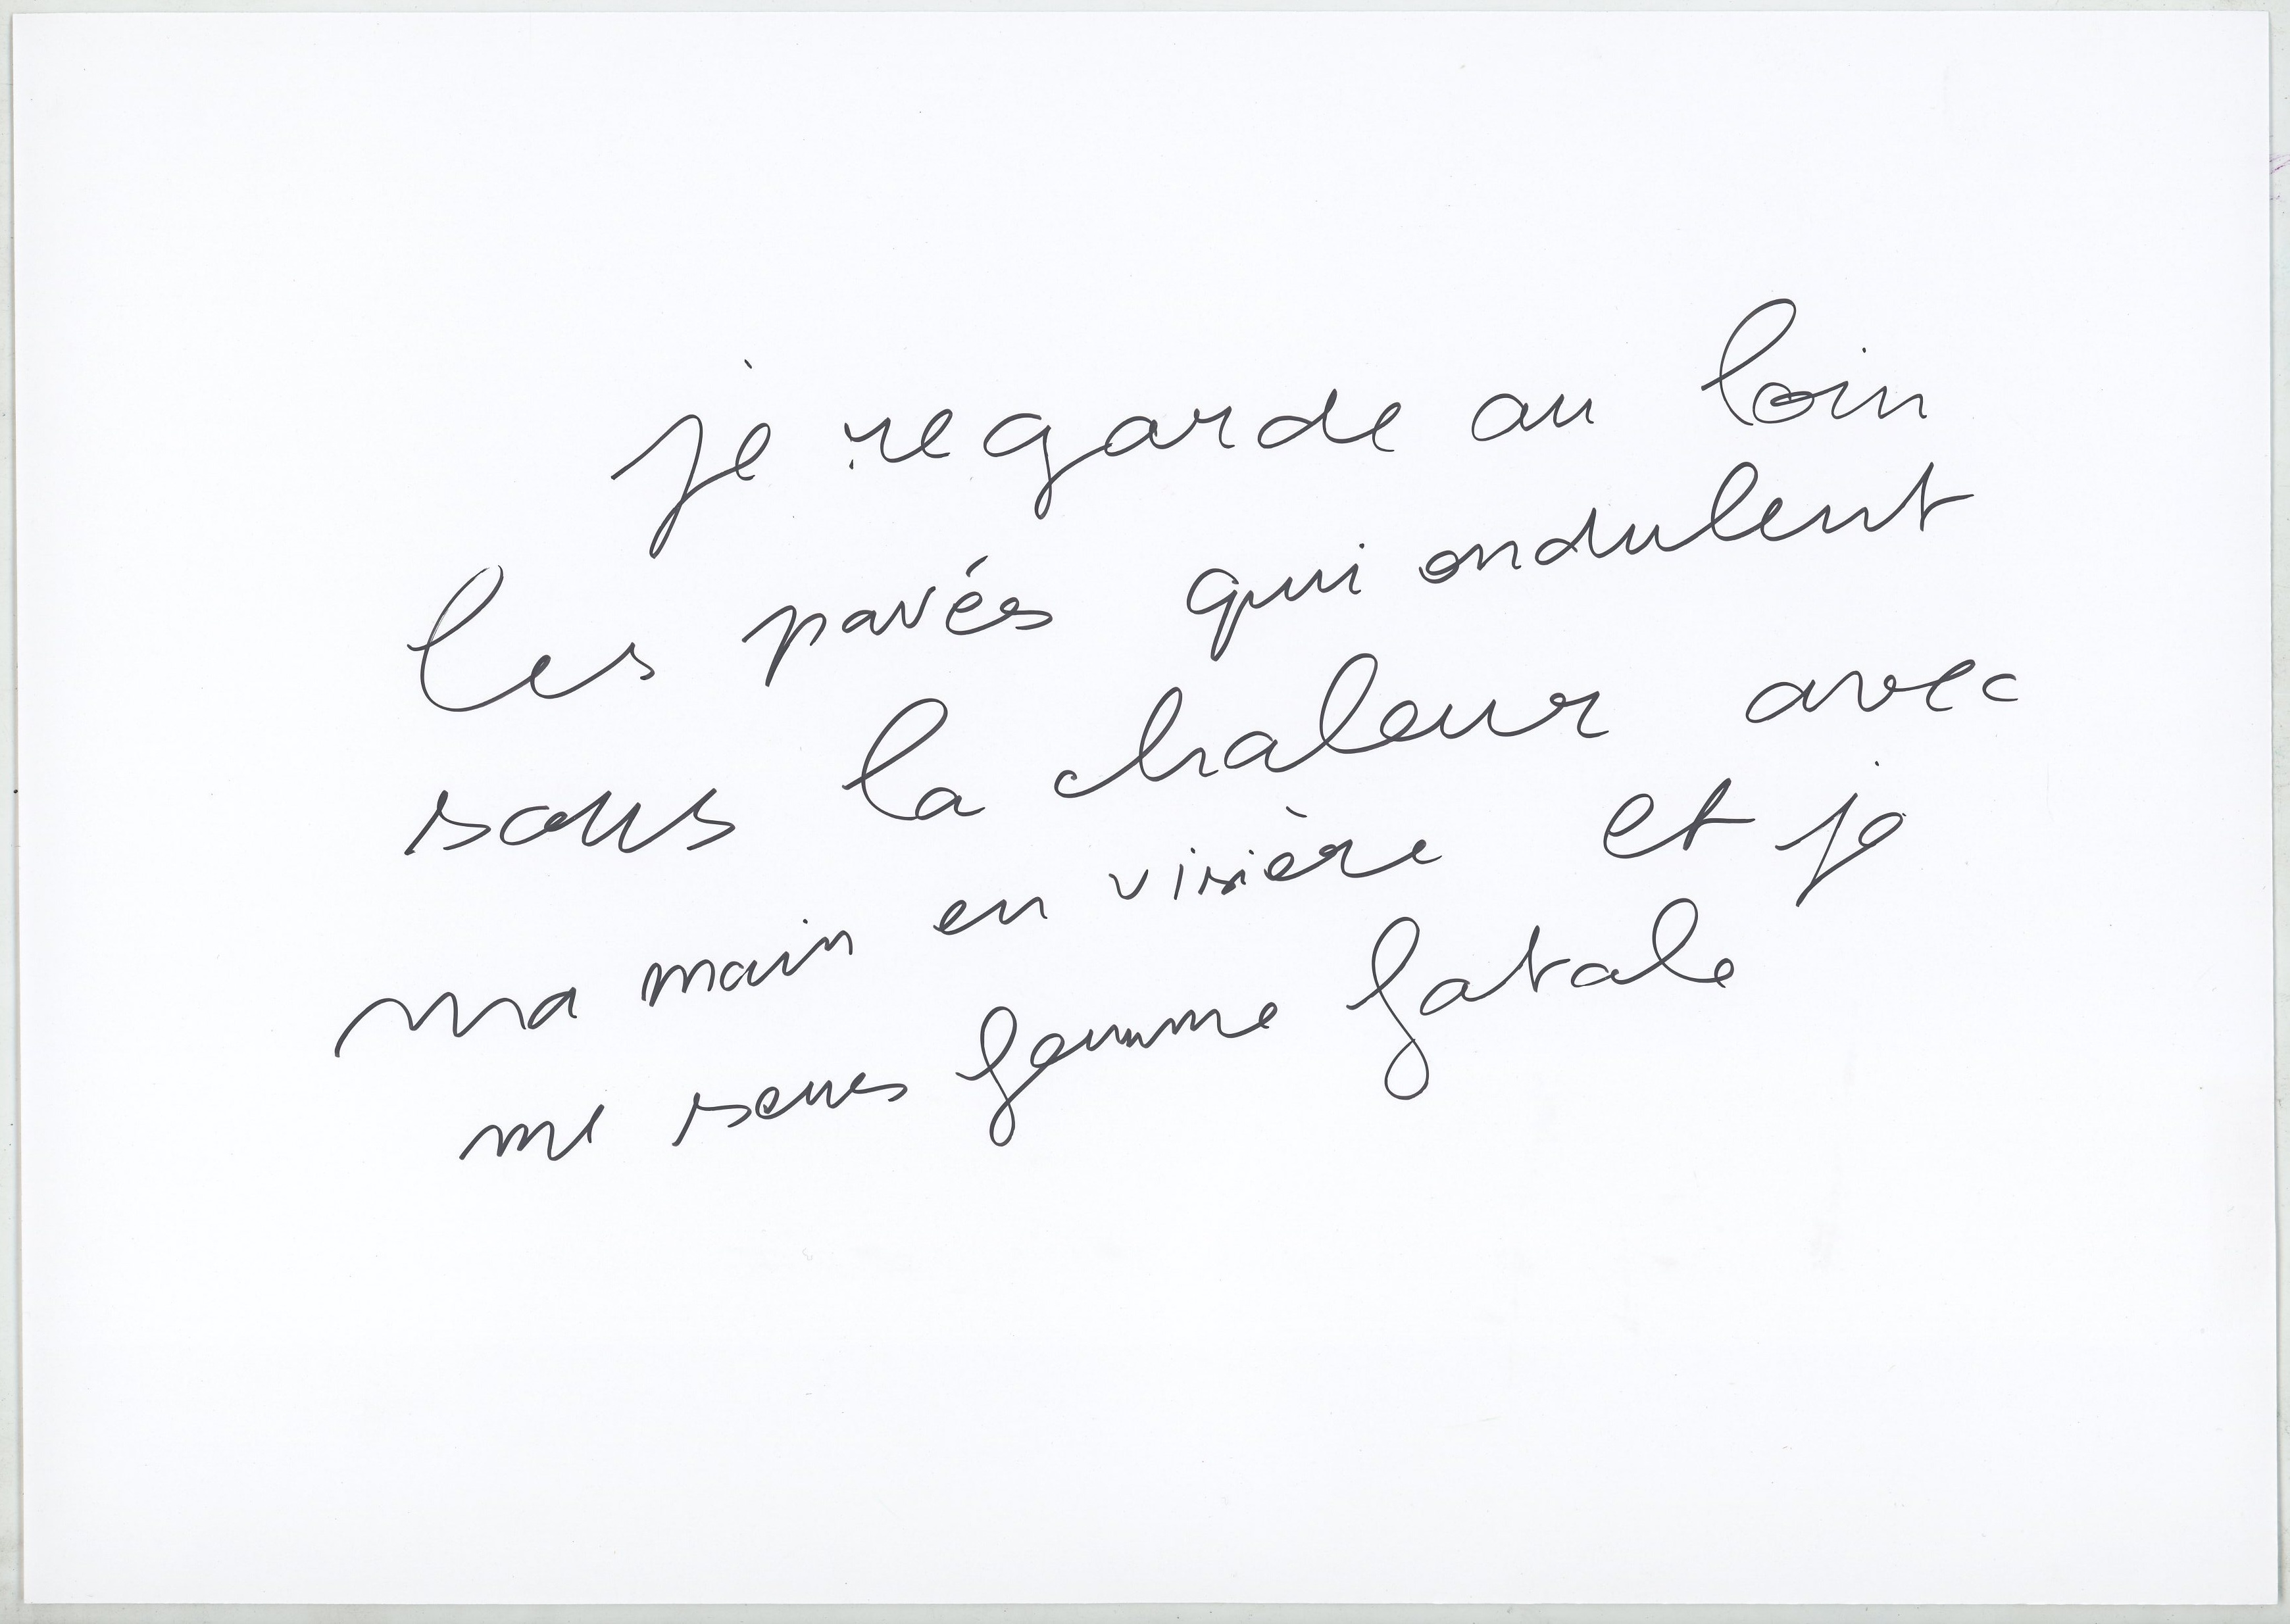 je regarde au loin
les pavés qui ondulent
sous la chaleur avec
ma main en visière et je
me sens femme fatale